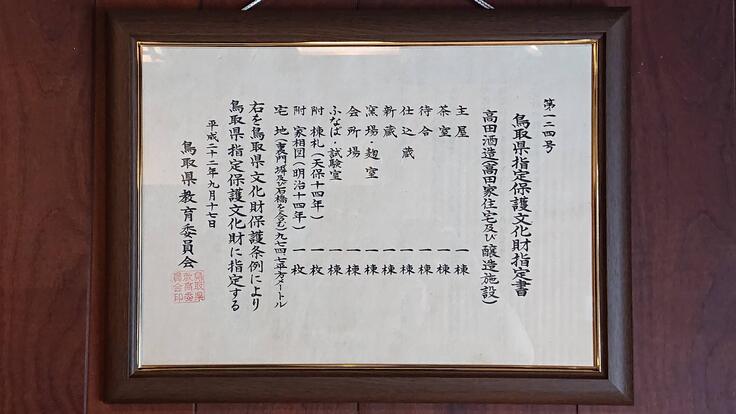 第一二四号
鳥取県指定保護文化財指定書
高田酒造(高田家住宅及び醸造施設)
主屋 一棟
茶室 一棟
待合 一棟
仕込蔵 一棟
新蔵 一棟
窯場・麹室 一棟
会所場 一棟
ふなば・試験室 一棟
附 棟札(天保十四年) 一枚
附 家相図(明治十四年) 一枚
宅地(裏門塀及び石橋を含む)九七四七平方メートル
右を鳥取県文化財保護条例により
鳥取県指定保護文化財に指定する
平成二十二年九月十七日
鳥取県教育委員会
鳥取県
教育委
員会印